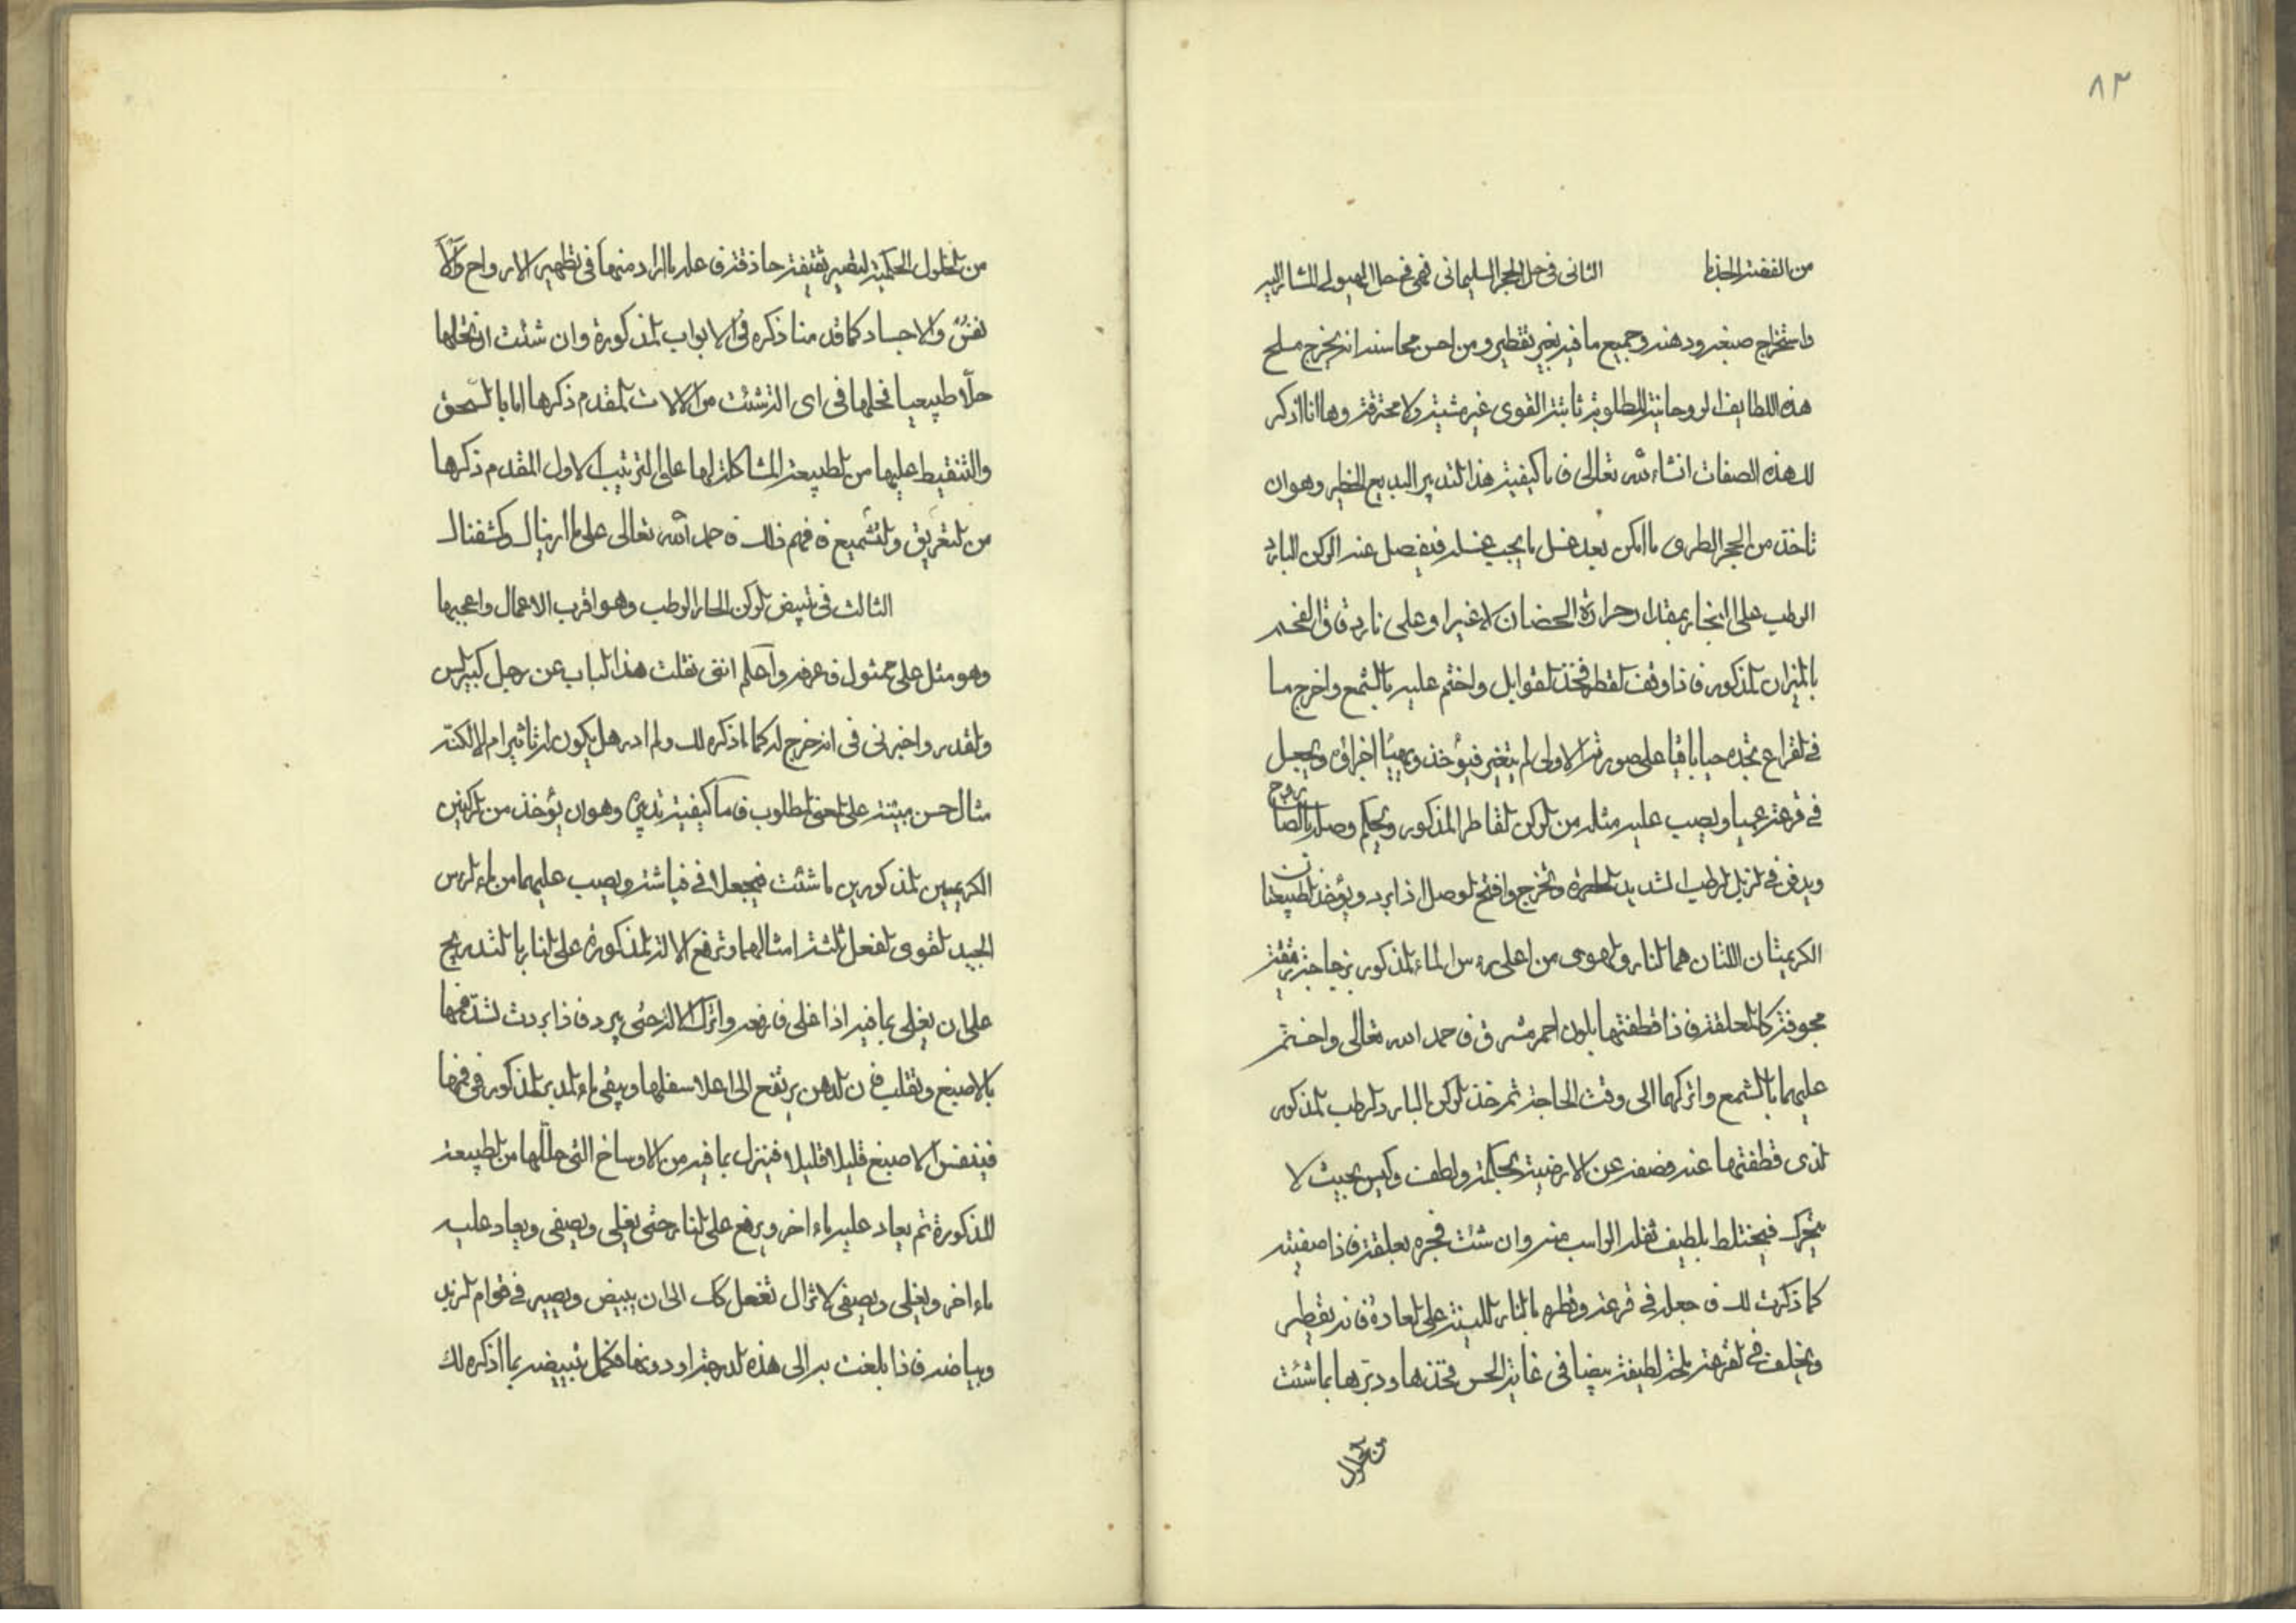 ٨٣
من الفضة الجذيا الثانى فى حل الحجر السليمانى فهى فى حل الهيولى المشار اليه
واستخراج صبغه ودهنه وجميع ما فيه بغير تقطير ومن احسن محاسنه انه يخرج ملح
هذه اللطايف الروحانية المطلوبة ثابتة القوى غير مشيتة ولا محترقة وها انا اذكر
لك هذه الصفات انشاء الله تعالى فاما كيفية هذا التدبير البديع الخطير وهو ان
تاخذ من الحجر الطرى ما امكن بعد غسل ما يجب غسله فيفصل عنه الركن البارد
الرطب على البخار بمقدار حرارة الحضان لا غير او على نار دقاق الفحم
بالميزان المذكور فاذا وقف القطر فخذ القوابل واختم عليه بالشمع واخرج ما
فى القراع تجده حيا باقيا على صورته الاولى لم يتغير فيؤخذ ويهيأ اخراقه ويجعل
فى قرعة عميا ويصب عليه مثله من الركن القاطر المذكور ويحكم وصله بالصاروج
ويدفن فى الزبل الرطب الشديد الحرارة وتخرج وافتح الوصل اذا برد ويؤخذ الطبيعتان
الكريمتان اللتان هما النار والهوى من اعلى راس الماء المذكور بزجاجة رقيقة
مجوفة كالملعقة فاذا قطفتها بلون احمر مشرق فاحمد الله تعالى واختم
عليهما بالشمع واتركهما الى وقت الحاجة ثم خذ الركن البارد الرطب المذكور
الذى قطفتهما عنه فصفه عن الارضية بحكمة ولطف وكيس بحيث لا
يتحرك فيختلط بلطيف ثفله الراسب منه وان شئت فجره بعلقة فاذا صفيته
كما ذكرت لك فاجعله فى قرعة وقطره بالنار اللينة على العادة فانه يقطر
ويخلف فى القرعة ملحة لطيفة بيضا فى غاية الحسن فخذها ودبرها بما شئت
من الحلول
من الحلول الحكمية لتصير نقيفة حاذقة فاعلة ما اراد منها فى تطهير الارواح والا
نفس والاجساد كما قدمنا ذكره فى الابواب المذكورة وان شئت ان تحلها
حلا طبيعيا فحلها فى اى الة شئت من الالات المقدم ذكرها اما بالسحق
والتنقيط عليها من الطبيعة المشاكلة لها على الترتيب الاول المقدم ذكرها
من التغريق والتشميع فافهم ذلك فاحمد الله تعالى على ما ارينا لك وكشفنا لك
الثالث فى تبيض الركن الحار الرطب وهو اقرب الاعمال واعجبها
وهو مثل على ممثول فاعرفه واعلم اننى نقلت هذا الباب عن رجل كبير السن
والقدر واخبرنى فى انه خرج له كما اذكره لك ولم ادر هل يكون له تاثير ام لا لكنه
مثال حسن مبينة على المعنى المطلوب فاما كيفية تدبيره وهو ان يؤخذ من الركنين
الكريمين المذكورين ما شئت فيجعلا فى فياشة ويصب عليهما من ماء الراس
الجيد القوى الفعل ثلثة امثالهما وترفع الالة المذكورة على النار بالتدريج
على ان يغلى بما فيه اذا غلى فارفعه واترك الالة حتى يبرد فاذا بردت لشد فمها
بالاصبغ وتقلب فان الدهن يرتفع الى اعلا سفلها ويبقى ماء المدبر المذكور فى فمها
فينفس الاصبع قليلا قليلا فينزل بما فيه من الاوساخ التى حللها من الطبيعة
المذكورة ثم يعاد عليه ماء اخر ويرفع على النار حتى يغلى ويصفى ويعاد عليه
ماء اخر ويغلى ويصفى لا تزال تفعل كك الى ان يبيض ويصير فى قوام الزبد
وبياضه فاذا بلغت به الى هذه الدرجة او دونها فكمل تبييضه بما اذكره لك